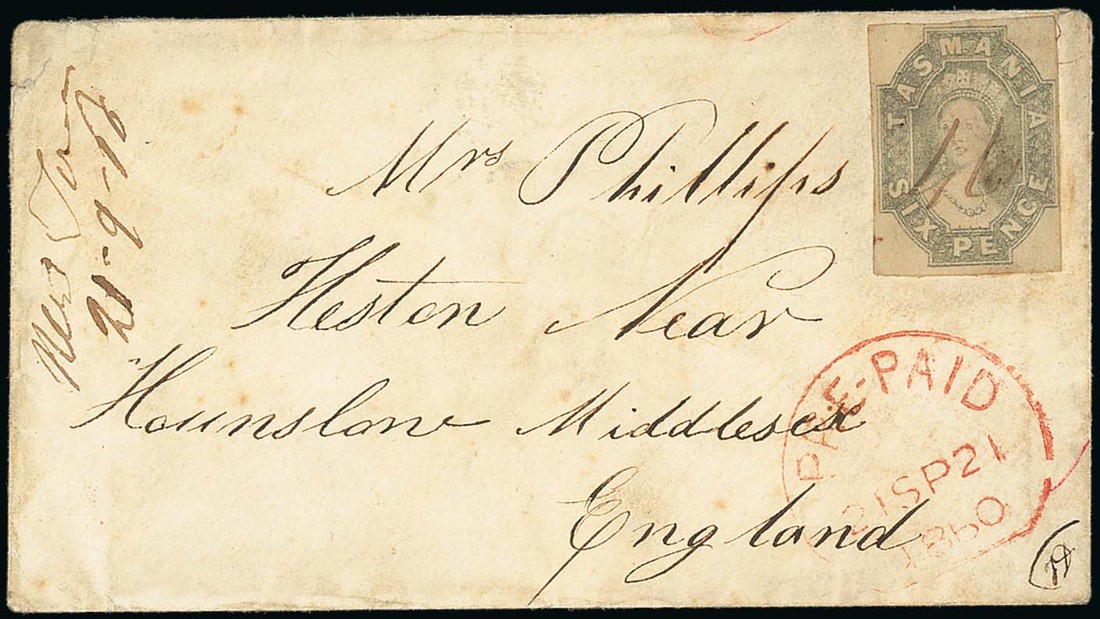 TASMANIA
SIX PENCE
Mrs Phillips
Heston Near
Hounslow Middlesex
England
New Town
21-9-
PRE-PAID
SP21
1860